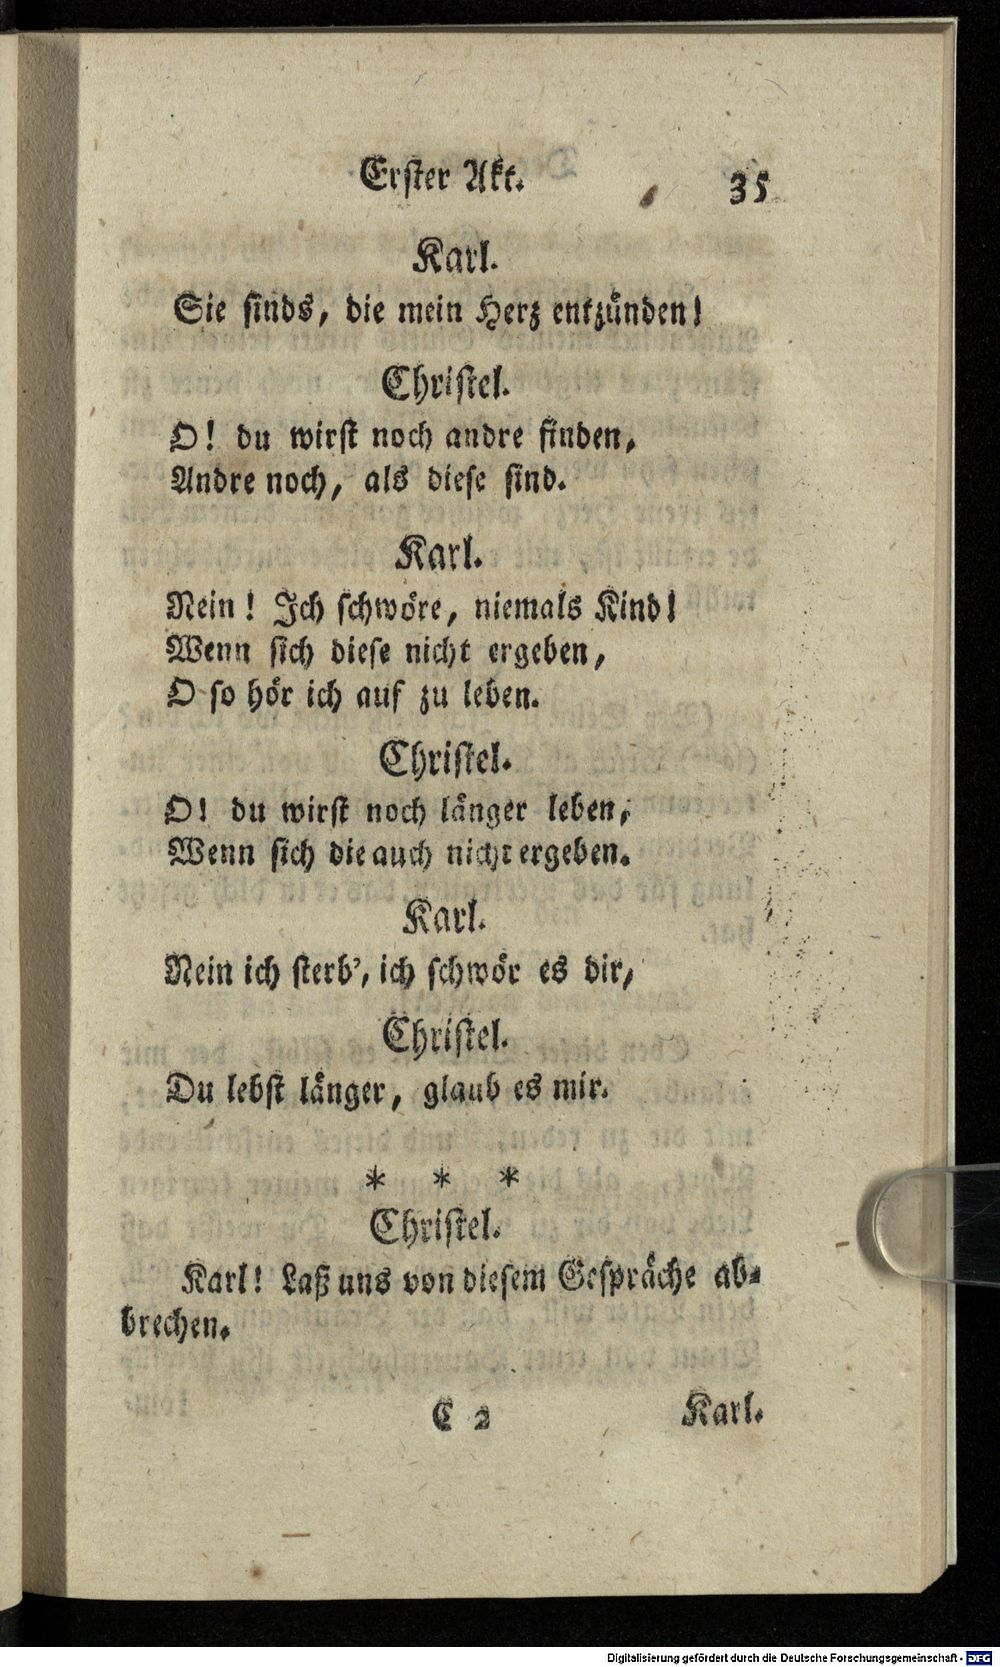 Erster Akt. 35
Karl.
Sie sinds, die mein Herz entzünden!
Christel.
O! du wirst noch andre finden,
Andre noch, als diese sind.
Karl.
Nein! Ich schwöre, niemals Kind!
Wenn sich diese nicht ergeben,
O so hör ich auf zu leben.
Christel.
O! du wirst noch länger leben,
Wenn sich die auch nicht ergeben.
Karl.
Nein ich sterb', ich schwör es dir,
Christel.
Du lebst länger, glaub es mir.
* * *
Christel.
Karl! Laß uns von diesem Gespräche ab-
brechen.
C 2 Karl.
Digitalisierung gefördert durch die Deutsche Forschungsgemeinschaft - DFG